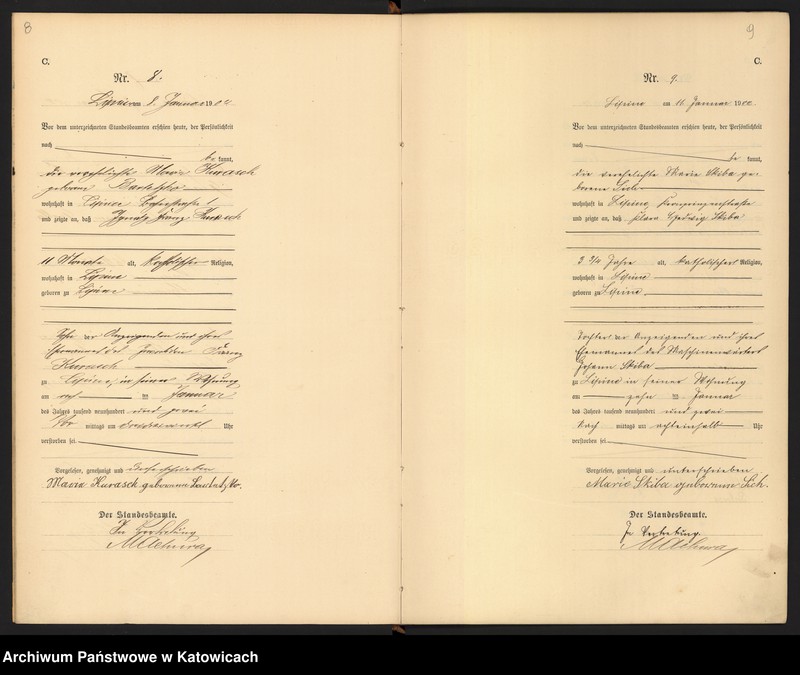 8
C.
Nr. 8.
Lipine am 8. Januar 1902
Vor dem unterzeichneten Standesbeamten erschien heute, der Persönlichkeit
nach
be kannt,
die verehelichte Marie Kurasch
geborene
wohnhaft in Lipine
und zeigte an, daß Franz Kurasch
11 Monate alt, katholischer Religion,
wohnhaft in Lipine
geboren zu Lipine
Sohn der Anzeigenden und ihres
Ehemannes des Franz
Kurasch
zu Lipine, in seiner Wohnung
am Januar
des Jahres tausend neunhundert und zwei
Vor mittags um Uhr
verstorben sei.
Vorgelesen, genehmigt und unterschrieben
Maria Kurasch geborene
Der Standesbeamte.
In Vertretung
9
C.
Nr. 9.
Lipine am 11 Januar 1902.
Vor dem unterzeichneten Standesbeamten erschien heute, der Persönlichkeit
nach
be kannt,
die verehelichte Marie Skiba ge-
borene
wohnhaft in Lipine, Kronprinzenstrasse
und zeigte an, daß Klara Hedwig Skiba
3 3/4 Jahre alt, katholischer Religion,
wohnhaft in Lipine
geboren zu Lipine
Tochter der Anzeigenden und ihres
Ehemannes des Maschinenwärters
Johann Skiba
zu Lipine in seiner Wohnung
am zehn ten Januar
des Jahres tausend neunhundert und zwei
Nach mittags um achteinhalb Uhr
verstorben sei.
Vorgelesen, genehmigt und unterschrieben
Marie Skiba geborene
Der Standesbeamte.
In Vertretung.
Archiwum Państwowe w Katowicach